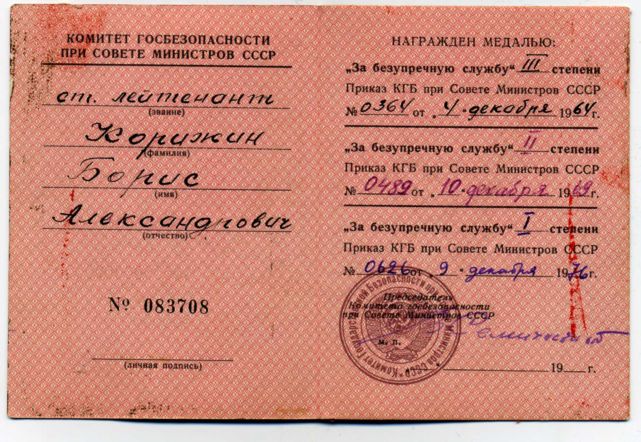 КОМИТЕТ ГОСБЕЗОПАСНОСТИ
ПРИ СОВЕТЕ МИНИСТРОВ СССР
ст. лейтенант
(звание)
Корижин
(фамилия)
Борис
(имя)
Александрович
(отчество)
№ 083708
(личная подпись)
НАГРАЖДЕН МЕДАЛЬЮ:
„За безупречную службу" III степени
Приказ КГБ при Совете Министров СССР
№ 0364 от 4 · декабря 1964 г.
„За безупречную службу" II степени
Приказ КГБ при Совете Министров СССР
№ 0489 от 10 · декабря 1969 г.
„За безупречную службу" I степени
Приказ КГБ при Совете Министров СССР
№ 0626 от 9 · декабря 1976 г.
Председатель
Комитета госбезопасности
при Совете Министров СССР
м. п.
19 г.